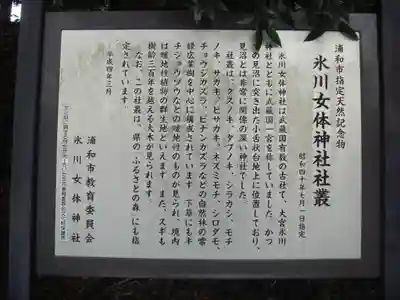 浦和市指定天然記念物
氷川女体神社社叢
昭和四十年七月一日指定
氷川女体神社は武蔵国有数の古社で、大宮氷川
神社とともに武蔵国一宮を称していました。かつ
ての見沼に突き出た小舌状台地上に位置しており、
見沼とは非常に関係の深い神社でした。
社叢は、クスノキ、タブノキ、シラカシ、モチ
ノキ、サカキ、ヒサカキ、ネズミモチ、シロダモ、
チョウジカズラ、ビナンカズラなどの自然林の常
緑広葉樹を中心に構成されています。下草にもキ
チジョウソウなどの暖地性のものが見られ、境内
は暖地性植物の群生地といえます。また、スギも
樹齢三百年を越える大木が見られます。
なお、この社叢は、県の「ふるさとの森」にも指
定されています。
平成四年三月
浦和市教育委員会
氷川女体神社